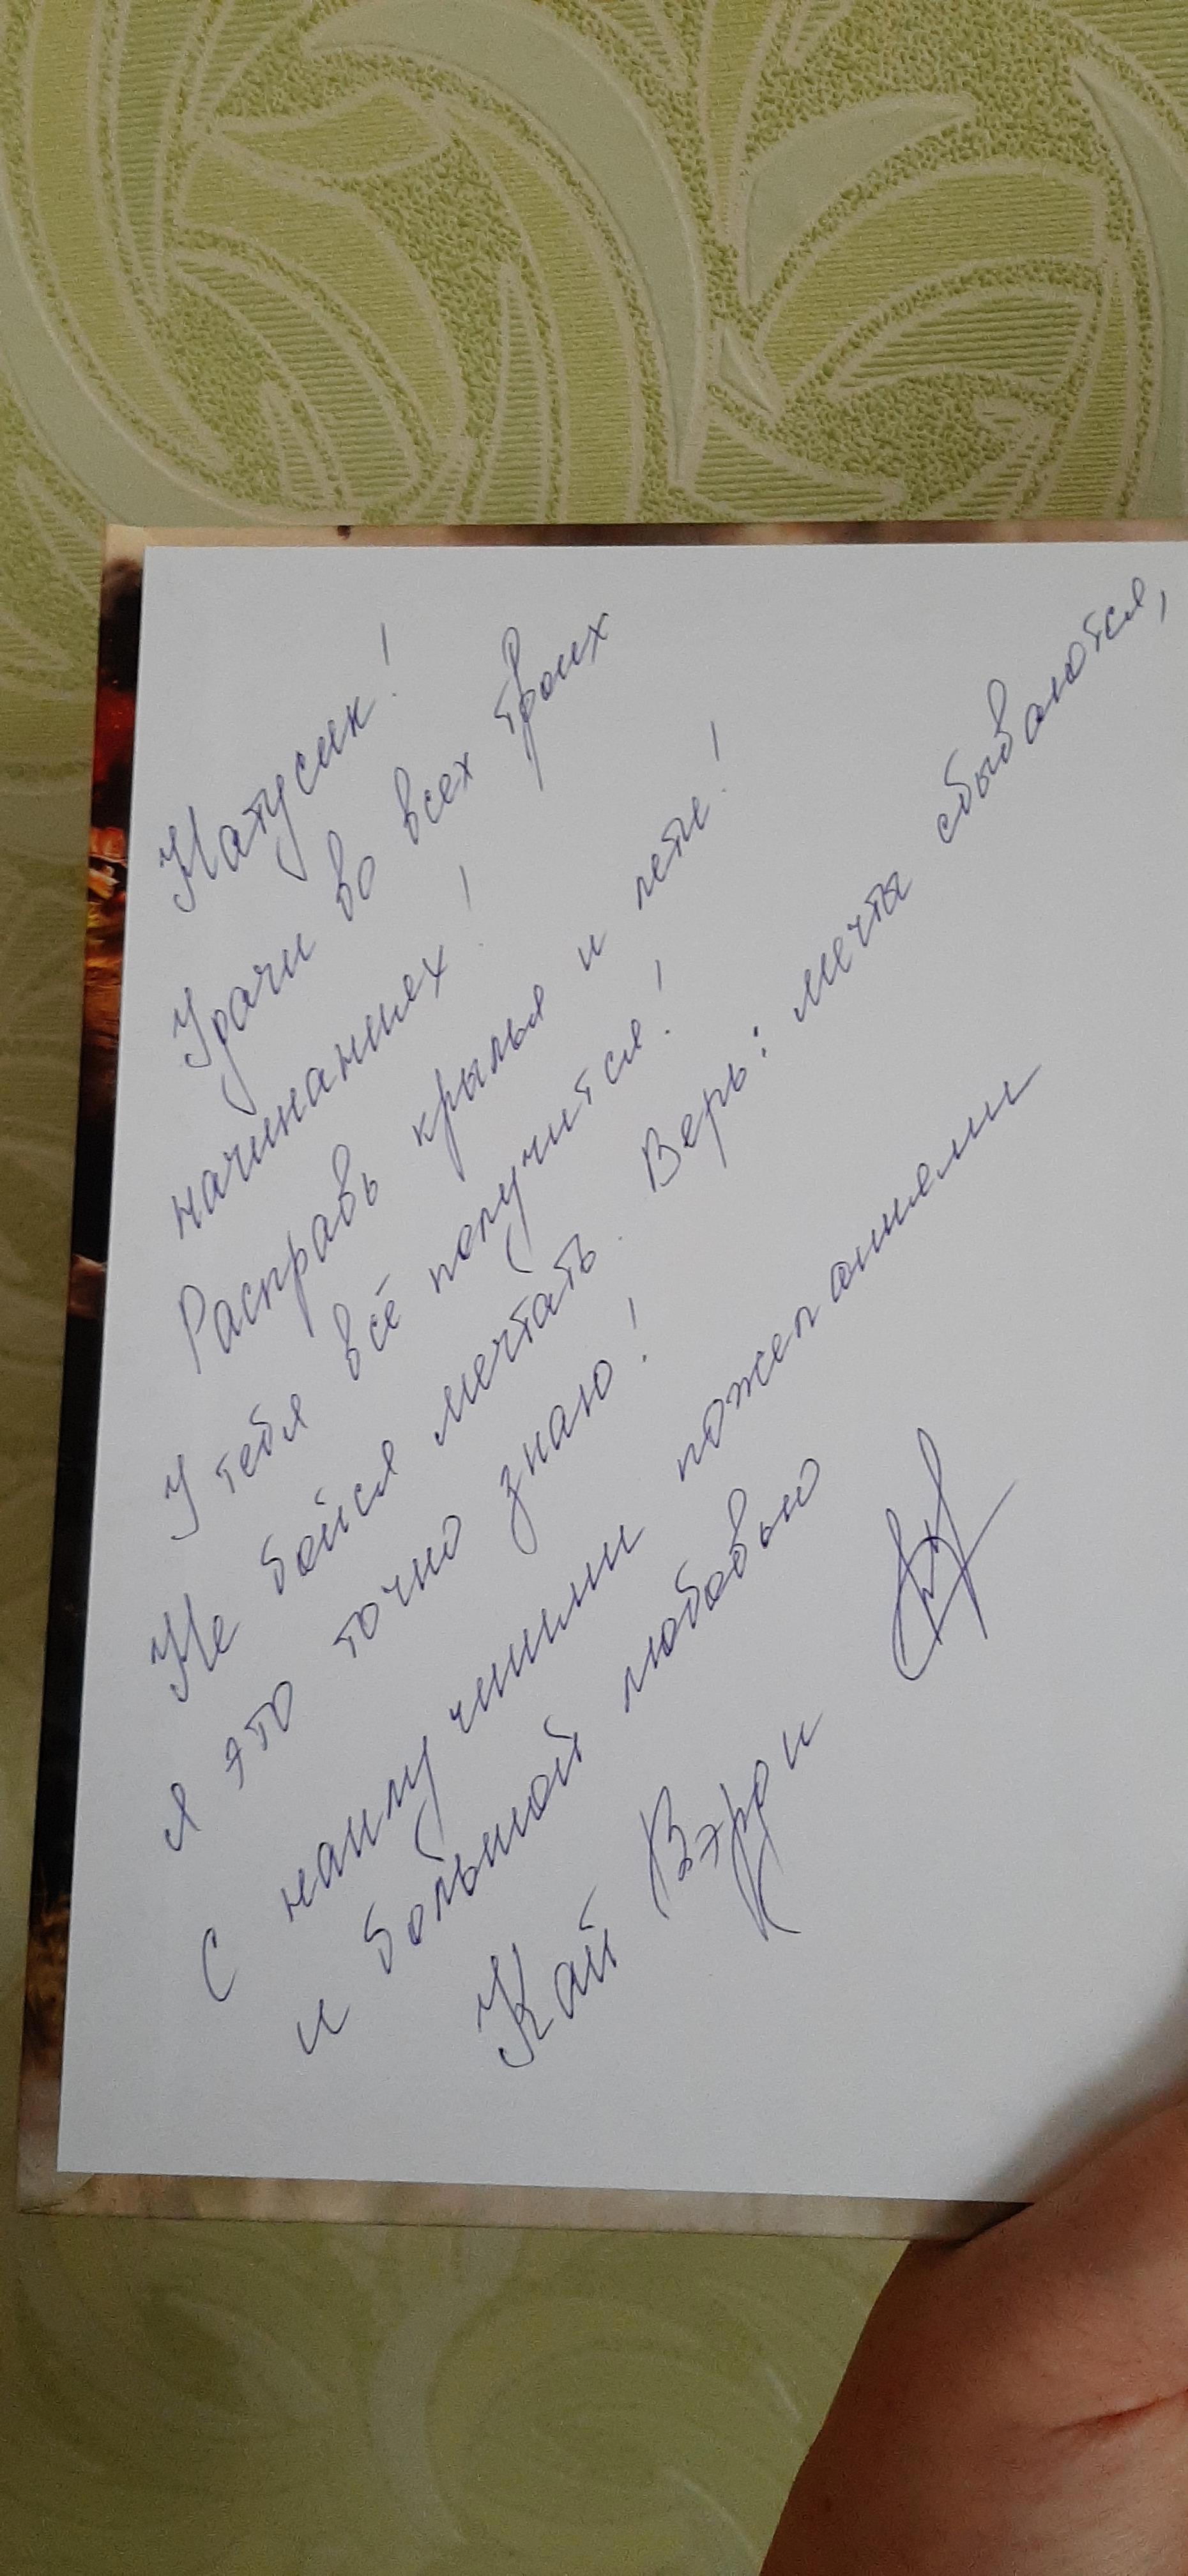 Натусик!
Удачи во всех твоих
начинаниях!
Расправь крылья и лети!
У тебя всё получится!
Не бойся мечтать. Верь: мечты сбываются,
я это точно знаю!
С наилучшими пожеланиями
и большой любовью
Кай Вэрди